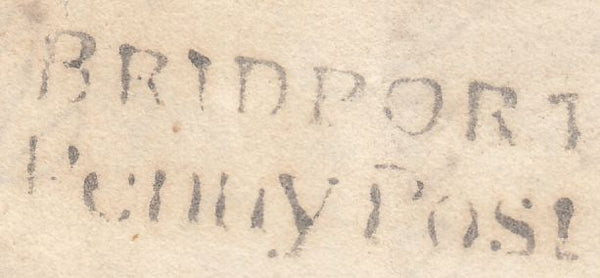 BRIDPORT
Penny Post